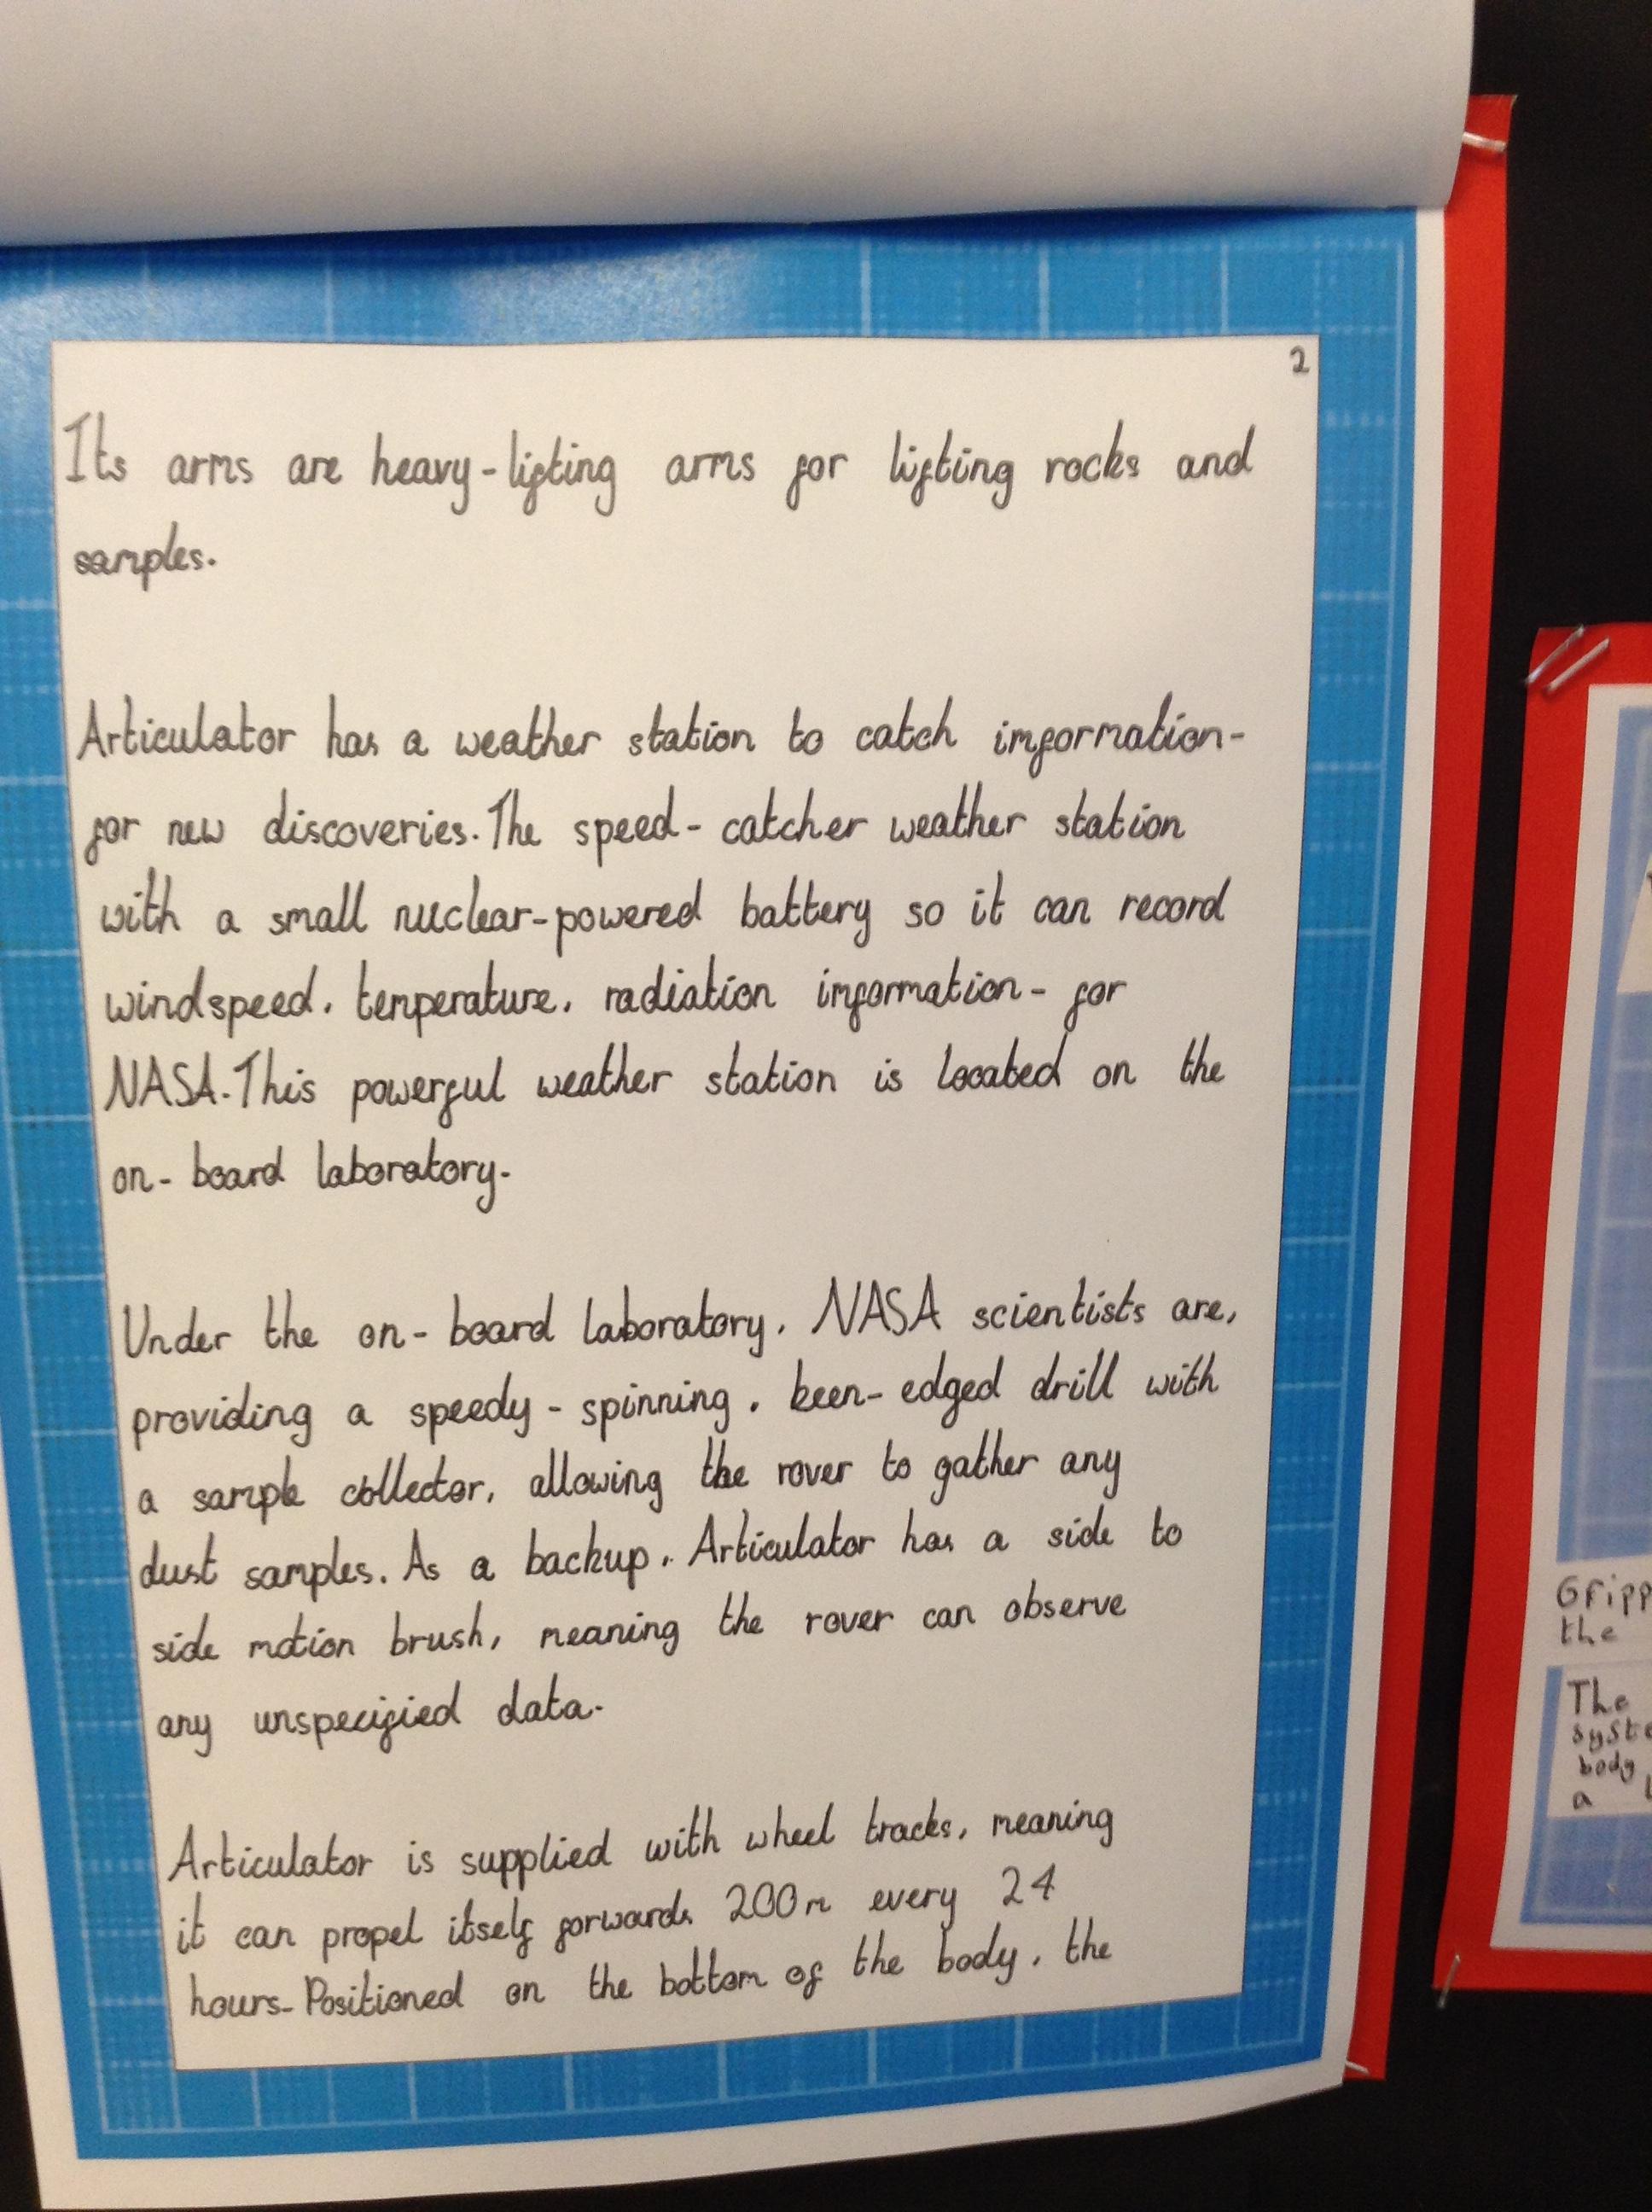 2
Its arms are heavy-lifting arms for lifting rocks and
samples.
Articulator has a weather station to catch imformation-
for new discoveries. The speed-catcher weather station
with a small nuclear-powered battery so it can record
windspeed, temperature, radiation imformation- for
NASA. This powerful weather station is located on the
on-board laboratory.
Under the on-board laboratory, NASA scientists are,
providing a speedy-spinning, keen-edged drill with
a sample collector, allowing the rover to gather any
dust samples. As a backup, Articulator has a side to
side motion brush, meaning the rover can observe
any unspecified data.
Articulator is supplied with wheel tracks, meaning
it can propel itself forwards 200m every 24
hours. Positioned on the bottom of the body, the
Gripp
the
The
syste
body
a